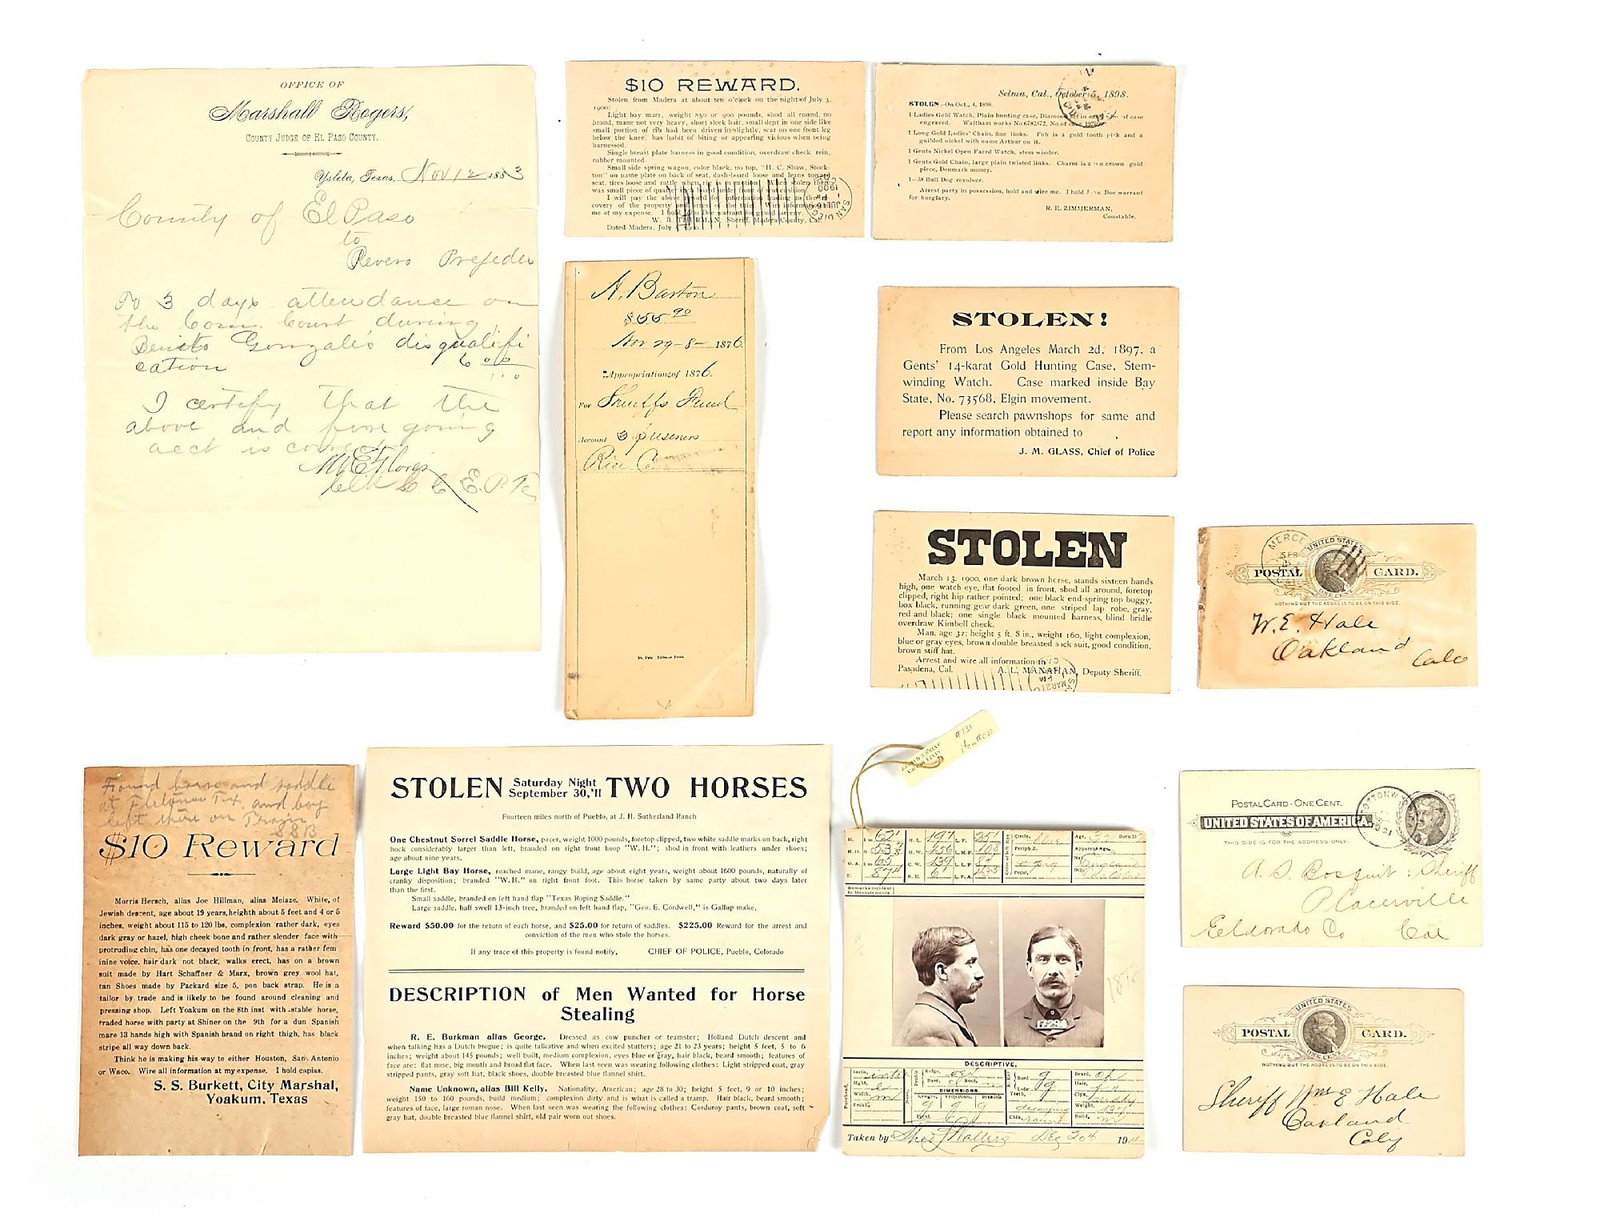 OFFICE OF
Marshall Rogers,
COUNTY JUDGE OF EL PASO COUNTY.
Ysleta, Texas, Nov 12 1883
County of El Paso
to
To 3 days attendance on
the Com. Court during
Benito Gonzales disqualifi
cation 6 00
I certify that the
above and fore going
acct is correct
$10 REWARD.
Stolen from Madera at about ten o'clock on the night of July 3,
1900:
Light bay mare, weight 850 or 900 pounds, shod all round, no
brand, mane not very heavy, short sleek hair, small dent in one side like
small portion of rib had been driven in slightly, scar on one front leg
below the knee, has habit of biting or appearing vicious when being
harnessed.
Single breast plate harness in good condition, overdraw check rein,
rubber mounted.
Small side spring wagon, color black, no top, "H. C. Shaw, Stock-
ton" on name plate on back of seat, dash-board loose and leans
seat, tires loose and rattle when
was small piece of
I will pay the above for information leading to the
covery of the property
me at my expense. I hold Doe warrant
Sheriff, Madera County,
Dated Madera, July
Selma, Cal., October 5, 1898.
STOLEN—On Oct., 4, 1898.
1 Ladies Gold Watch, Plain hunting case, Diamond set in of case
engraved. Waltham works
1 Long Gold Ladies' Chain, fine links. Fob is a gold tooth pick and a
guilded nickel with name Arthur on it.
1 Gents Nickel Open Faced Watch, stem winder.
1 Gents Gold Chain, large plain twisted links. Charm is a crown gold
piece, Denmark money.
1—38 Bull Dog revolver.
Arrest party in possession, hold and wire me. I hold John Doe warrant
for burglary.
R. E. ZIMMERMAN,
Constable.
A. Barton
$55 90
Nov 29-8- 1876
Appropriation of 1876.
For Sheriffs Fund
Account 3 prisoners
Rice Co
STOLEN!
From Los Angeles March 2d, 1897, a
Gents' 14-karat Gold Hunting Case, Stem-
winding Watch. Case marked inside Bay
State, No. 73568, Elgin movement.
Please search pawnshops for same and
report any information obtained to
J. M. GLASS, Chief of Police
STOLEN
March 13, 1900, one dark brown horse, stands sixteen hands
high, one watch eye, flat footed in front, shod all around, foretop
clipped, right hip rather pointed; one black end-spring top buggy,
box black, running gear dark green, one striped lap robe, gray,
red and black; one single black mounted harness, blind bridle
overdraw Kimbell check.
Man, age 32; height 5 ft. 8 in., weight 160, light complexion,
blue or gray eyes, brown double breasted sack suit, good condition,
brown stiff hat.
Arrest and wire all information to
Pasadena, Cal. A. L. MANAHAN, Deputy Sheriff.
UNITED STATES
POSTAL CARD.
ONE CENT
NOTHING BUT THE ADDRESS TO BE ON THIS SIDE.
W. E. Hale
Oakland
Calo
Found horse and saddle
at Flatonia Tex, and boy
left there on Train
SSB
$10 Reward
Morris Hersch, alias Joe Hillman, alias Meiaze. White, of
Jewish descent, age about 19 years, heighth about 5 feet and 4 or 5
inches, weight about 115 to 120 lbs, complexion rather dark, eyes
dark gray or hazel, high cheek bone and rather slender face with
protruding chin, has one decayed tooth in front, has a rather fem
inine voice, hair dark not black, walks erect, has on a brown
suit made by Hart Schaffner & Marx, brown grey wool hat,
tan Shoes made by Packard size 5, pon back strap. He is a
tailor by trade and is likely to be found around cleaning and
pressing shop. Left Yoakum on the 8th inst with stable horse,
traded horse with party at Shiner on the 9th for a dun Spanish
mare 13 hands high with Spanish brand on right thigh, has black
stripe all way down back.
Think he is making his way to either Houston, San Antonio
or Waco. Wire all information at my expense. I hold capias.
S. S. Burkett, City Marshal,
Yoakum, Texas
STOLEN Saturday Night September 30,'11 TWO HORSES
Fourteen miles north of Pueblo, at J. H. Sutherland Ranch
One Chestnut Sorrel Saddle Horse, pacer, weight 1000 pounds, foretop clipped, two white saddle marks on back, right
hock considerably larger than left, branded on right front hoop "W. H."; shod in front with leathers under shoes;
age about nine years.
Large Light Bay Horse, roached mane, rangy build, age about eight years, weight about 1600 pounds, naturally of
cranky disposition; branded "W. H." on right front foot. This horse taken by same party about two days later
than the first.
Small saddle, branded on left hand flap "Texas Roping Saddle."
Large saddle, half swell 13-inch tree, branded on left hand flap, "Geo. E. Cordwell," is Gallup make.
Reward $50.00 for the return of each horse, and $25.00 for return of saddles. $225.00 Reward for the arrest and
conviction of the men who stole the horses.
If any trace of this property is found notify, CHIEF OF POLICE, Pueblo, Colorado
DESCRIPTION of Men Wanted for Horse
Stealing
R. E. Burkman alias George. Dressed as cow puncher or teamster; Holland Dutch descent and
when talking has a Dutch brogue; is quite talkative and when excited stutters; age 21 to 23 years; height 5 feet, 5 to 6
inches; weight about 145 pounds; well built, medium complexion, eyes blue or gray, hair black, beard smooth; features of
face are: flat nose, big mouth and broad flat face. When last seen was wearing following clothes: Light striped coat, gray
stripped pants, gray soft hat, black shoes, double breasted blue flannel shirt.
Name Unknown, alias Bill Kelly. Nationality, American; age 28 to 30; height 5 feet, 9 or 10 inches;
weight 150 to 160 pounds, build medium; complexion dirty and is what is called a tramp. Hair black, beard smooth;
features of face, large roman nose. When last seen was wearing the following clothes: Corduroy pants, brown coat, soft
gray hat, double breasted blue flannel shirt, old pair worn out shoes.
#131
DESCRIPTIVE.
DIMENSIONS
Taken by
POSTAL CARD - ONE CENT.
UNITED STATES OF AMERICA.
THIS SIDE IS FOR THE ADDRESS ONLY.
A. S. Bosquit: Sheriff
Placerville
Eldorado Co Cal
UNITED STATES
POSTAL CARD.
ONE CENT
NOTHING BUT THE ADDRESS TO BE ON THIS SIDE.
Sheriff Wm E Hale
Oakland
Caly